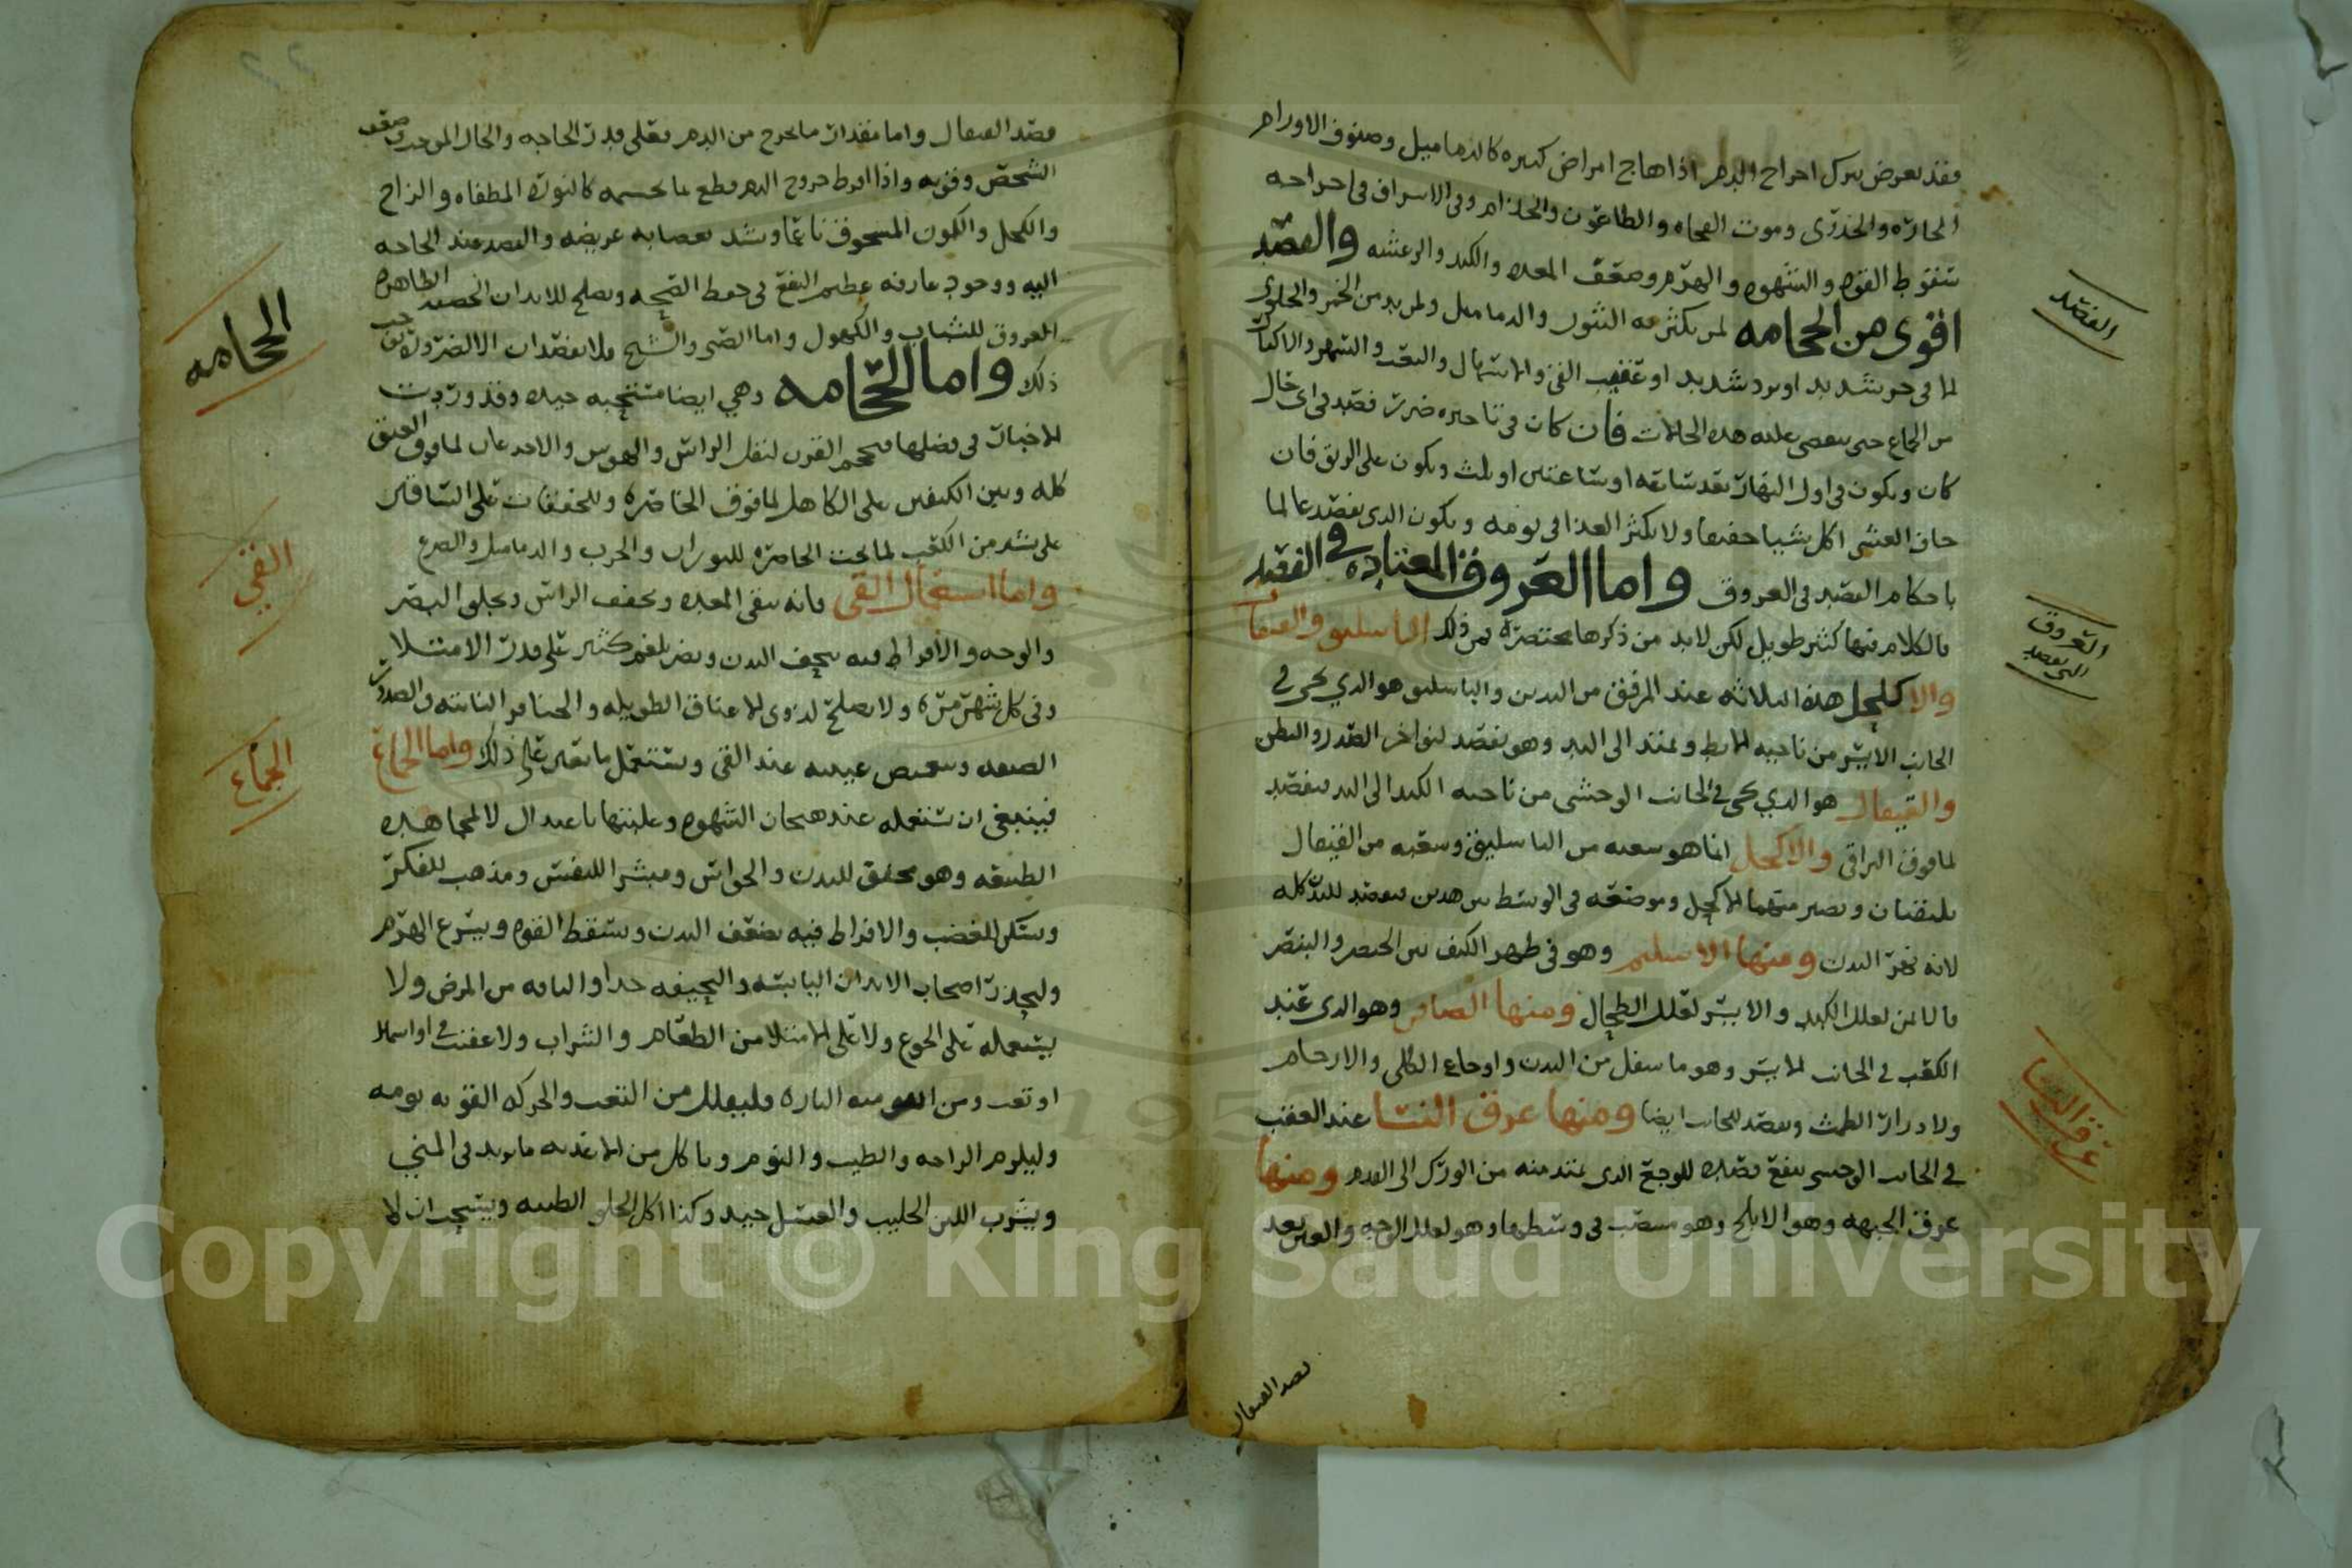 فقد يعرض بترك اخراج الدم اذا هاج امراض كثيره كالدماميل وصنوف الاورام
الحارّه والجدرى وموت الفجاه والطاعون والجذام وفى الاسراف فى اخراجه
سقوط القوه والشهوه والهرم وضعف المعده والكبد والرعشه والفصد
اقوى من الحجامه لمن يكثر به البثور والدماميل ولمن يدمن الخمر والحلوى
لا فى حر شديد او برد شديد او عقيب القى والاسهال والتعب والسهر والاكثار
من الجماع حتى يمضى عليه هذه الحالات فان كان فى تاخيره ضرر فصد فى اى حال
كان ويكون فى اول النهار بعد ساعه او ساعتين او ثلث ويكون على الريق فان
خاف الغشى اكل شيا خفيفا ولا يكثر الغذا فى يومه ويكون الذى يفصد عالما
باحكام الفصد فى العروق واما العروق المعتاده فى الفصد
فالكلام فيها كثير طويل لكن لابد من ذكرها مختصره فمن ذلك الباسليق والقيفال
والاكحل هذه الثلاثه عند المرفق من اليدين والباسليق هو الذي يجى في
الجانب الايسر من ناحيه الابط ويمتد الى اليد وهو يفصد لنواخر الصدر والبطن
والقيفال هو الذي يجى في الجانب الوحشى من ناحيه الكبد الى اليد فيفصد
لما فوق التراقى والاكحل انما هو شعبه من الباسليق وشعبه من القيفال
يلتقيان ويصير منهما الاكحل وموضعه فى الوسط بين هذين فيفصد للبدن كله
لانه نهر البدن ومنها الاسليم وهو فى ظهر الكف بين الخنصر والبنصر
فالايمن لعلل الكبد والايسر لعلل الطحال ومنها الصافن وهو الذى عند
الكعب في الجانب الايسر وهو ما سفل من البدن واوجاع الكلى والارحام
ولادرار الطمث ويفصد للجانب ايضا ومنها عرق النسا عند العقب
في الجانب الوحشى ينفع فصده للوجع الذى يمتد منه من الورك الى القدم ومنها
عرق الجبهه وهو الابلج وهو منتصب فى وسطها وهو لعلل الوجه والعين بعد
فصد القيفال
الفصد
العروق
التى تفصد
عرق النسا
فصد القيفال واما مقدار ما يخرج من الدم فعلى قدر الحاجه والحال الموجب وضعف
الشخص وقوته واذا افرط خروج الدم قطع بما يحسمه كالنوره المطفاه والزاج
والكحل والكمون المسحوق ناعما ويشد بعصابه عريضه والفصد عند الحاجه
اليه ووجود عارفه عظيم النفع فى حفظ الصحه ويصلح للابدان الخصبه الظاهره
العروق للشباب والكهول واما الصبى والشيخ فلا يفصدان الا لضروره توجب
ذلك واما الحجامه وهي ايضا مستحبه جيده وقد وردت
الاخبار فى فضلها فحجم القرن لثقل الراس والهوس والاخدعان لما فوق العنق
كله وبين الكتفين على الكاهل لما فوق الخاصره وللخفقان على الساقين
على شبر من الكعب لما تحت الخاصره للبوران والجرب والدماميل والصرع
واما استعمال القى فانه ينقى المعده ويخفف الراس ويجلى البصر
والوجه والافراط فيه يجفف البدن ويضر بلغم كثير على قدر الامتلا
وفى كل شهر مره ولا يصلح لذوى الاعناق الطويله والحناجر الناتئه والصدور
الضيقه ويعصب عينيه عند القى ويستعمل ما يعين على ذلك واما الجماع
فينبغى ان يستعمله عند هيجان الشهوه وغلبتها باعتدال لا لمجاهده
الطبيعه وهو مخفف للبدن والحواس ومبشر اللنفس ومذهب للفكر
ومسكن للغضب والافراط فيه يضعف البدن ويسقط القوه ويسرع الهرم
وليحذر اصحاب الابدان اليابسه والنحيفه جدا والناقه من المرض ولا
يستعمله على الجوع ولا على الامتلا من الطعام والشراب ولا عقيب قي او اسهال
او تعب ومن اليه وليقلل من التعب والحركه القويه يومه
وليلزم الراحه والطيب والنوم وياكل من الاغذيه ما يزيد فى المني
ويشرب اللبن الحليب والعسل جيد وكذا اكل الحلو الطيبه ويستحب ان لا
الحجامه
القي
الجماع
Copyright © King Saud University
195